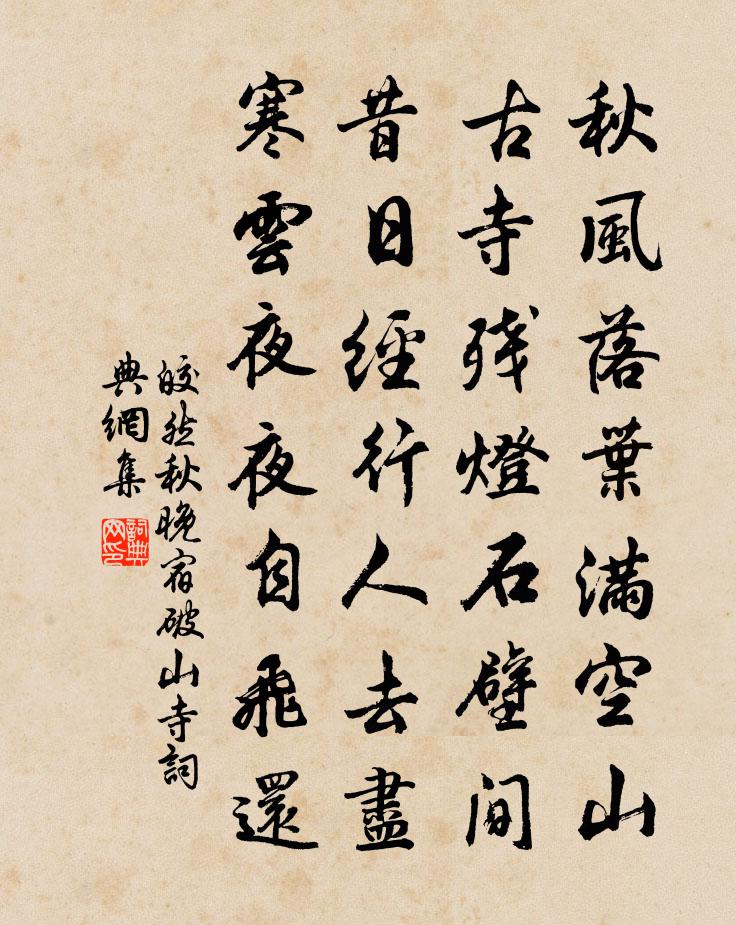 秋風落葉滿空山
古寺残燈石壁间
昔日經行人去盡
寒雲夜夜自飛還
皎然秋晚宿破山寺詞
典網集
詞典
网印